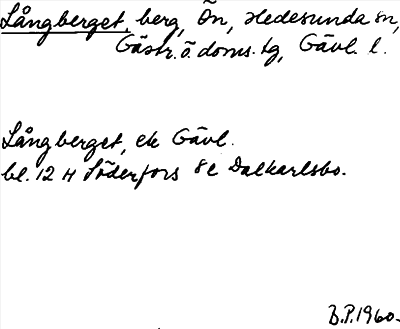 Långberget, berg, Ön, Hedesunda sn,
Gästr. ö. doms. tg, Gävl. l.
Långberget, ek Gävl.
bl. 12 H Söderfors 8 e Dalkarlsbo.
B.P. 1960.